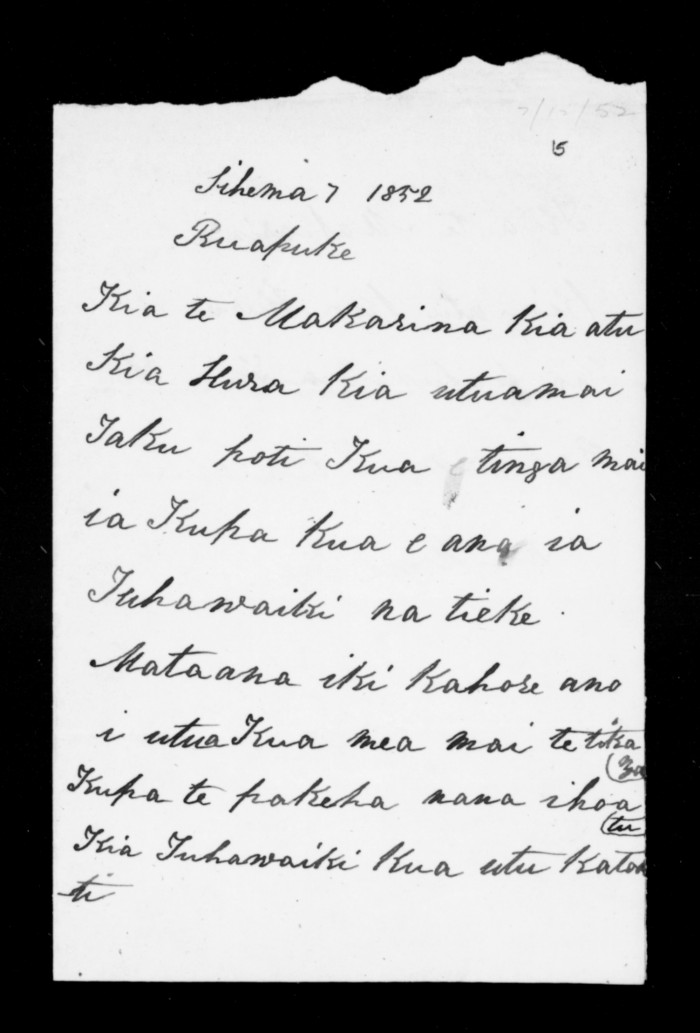 7/12/52
15
Tihema 7 1852
Ruapuke
Kia te Makarina Kia atu
Kia Hura Kia utuamai
Taku poti Kua tinga mai
ia Kupa Kua e ana ia
Tuhawaiki na tieke.
Mataana iki Kahore ano
i utua Kua mea mai te tika
(ga
Kupa te pakeha nana ihoa
(tu
Kia Tuhawaiki Kua utu Katoa
ti